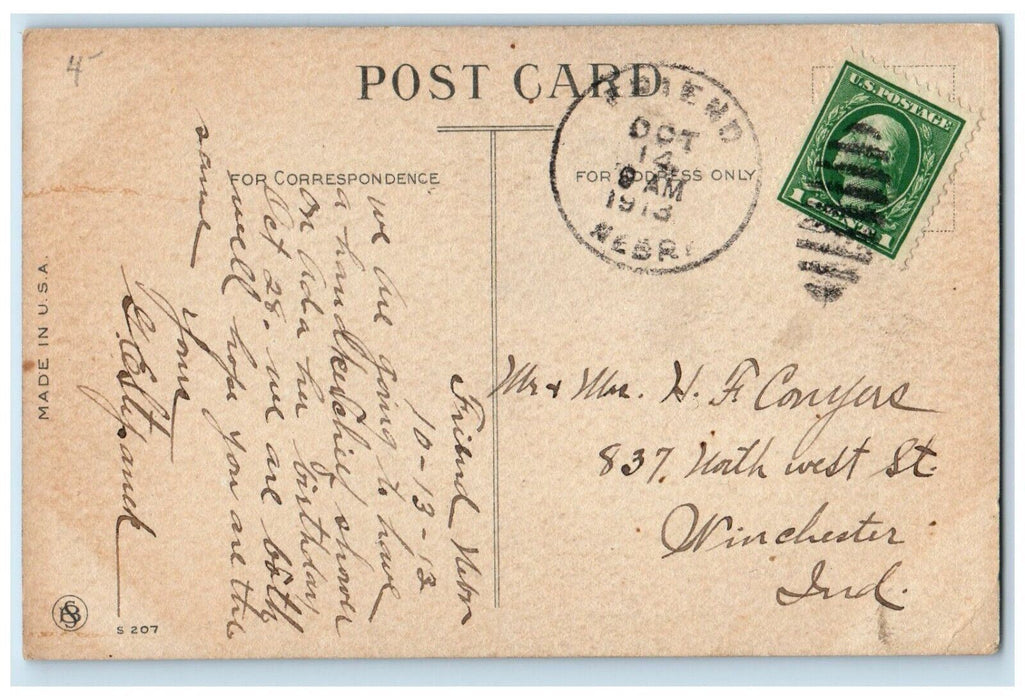 4-
POST CARD
FOR CORRESPONDENCE
FOR ADDRESS ONLY
FRIEND
OCT
14
8 AM
1913
NEBR.
U.S. POSTAGE
1 CENT 1
Friend Nebr
10-13-13
we are going to have
a handkerchief shower
on Ada her birthday
Oct 28- we are both
well hope you are the
same
Yours
Mr & Mrs. H. F. Conyers
837 North west St.
Winchester
Ind.
MADE IN U.S.A.
S 207